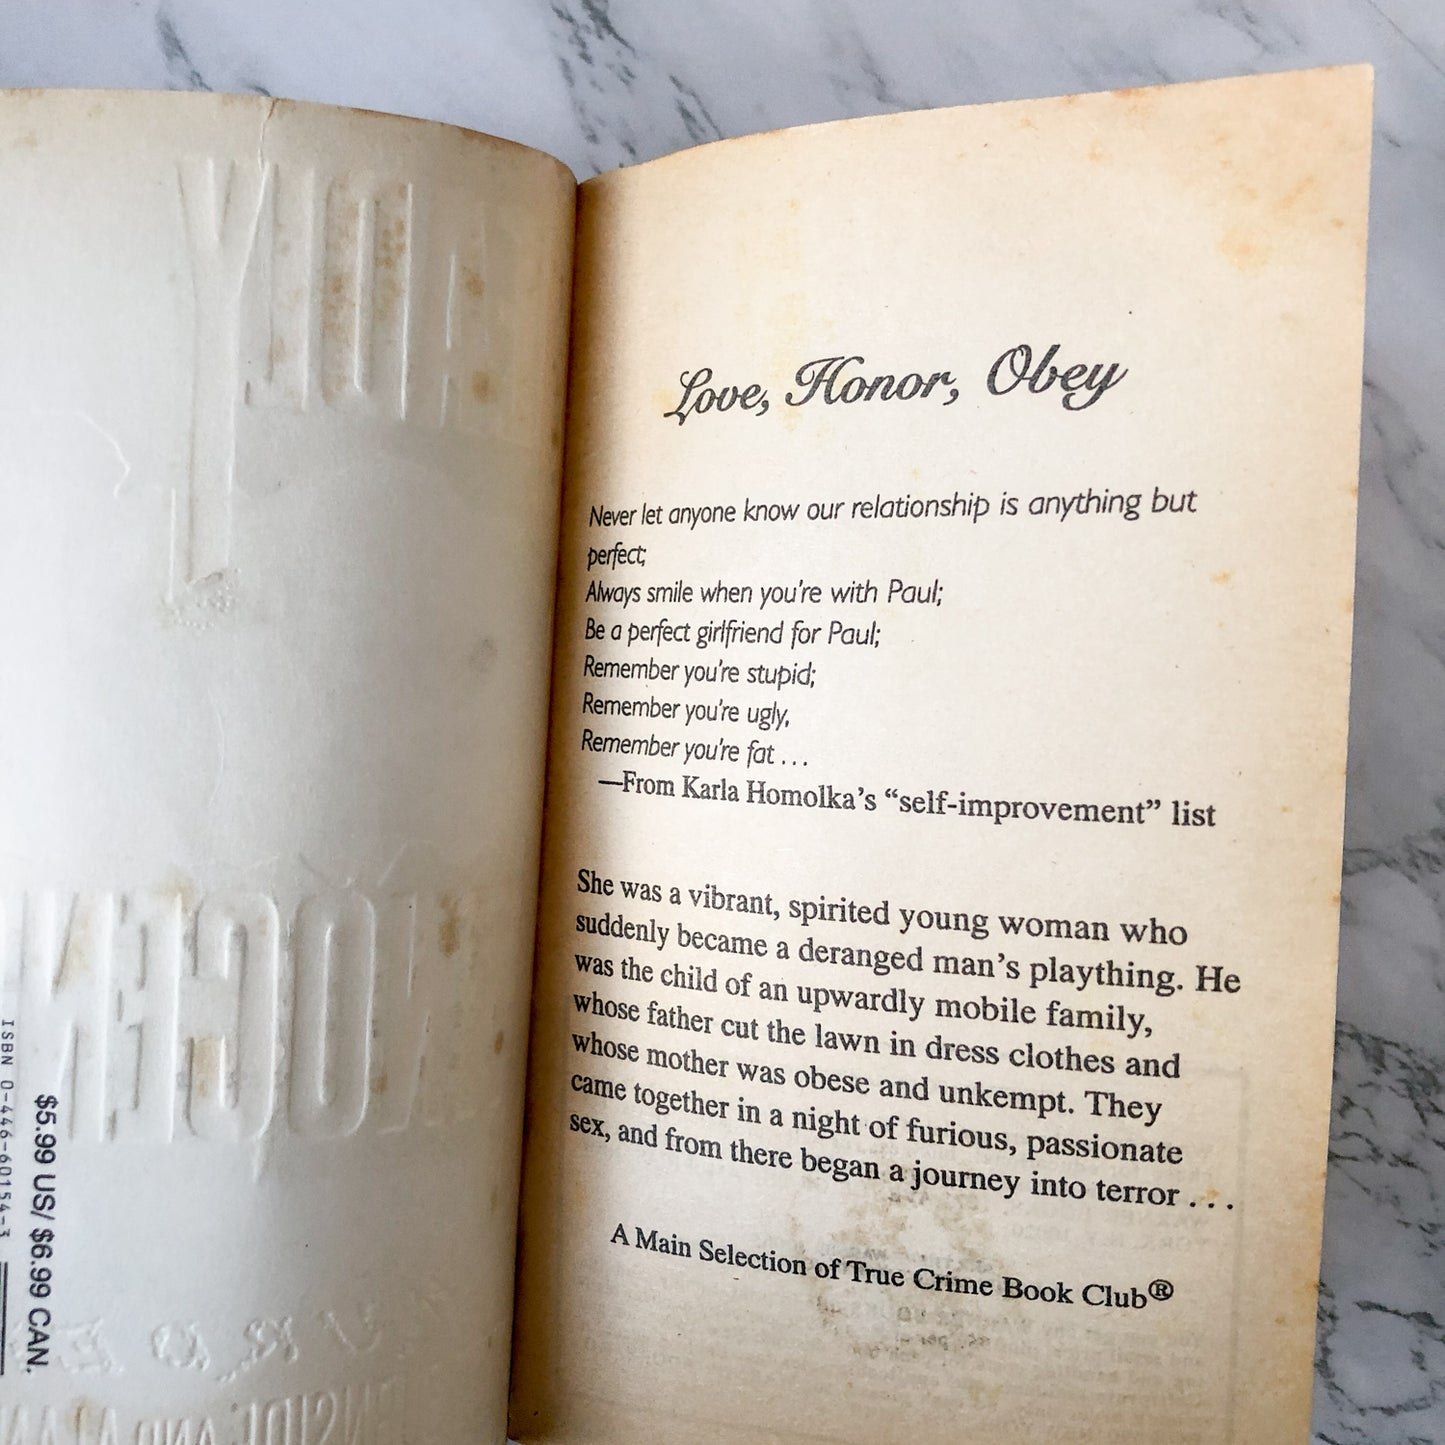 Love, Honor, Obey
Never let anyone know our relationship is anything but
perfect;
Always smile when you're with Paul;
Be a perfect girlfriend for Paul;
Remember you're stupid;
Remember you're ugly,
Remember you're fat . . .
—From Karla Homolka's “self-improvement” list
She was a vibrant, spirited young woman who
suddenly became a deranged man's plaything. He
was the child of an upwardly mobile family,
whose father cut the lawn in dress clothes and
whose mother was obese and unkempt. They
came together in a night of furious, passionate
sex, and from there began a journey into terror . . .
A Main Selection of True Crime Book Club®
$5.99 US/ $6.99 CAN.
ISBN 0-446-60154-3